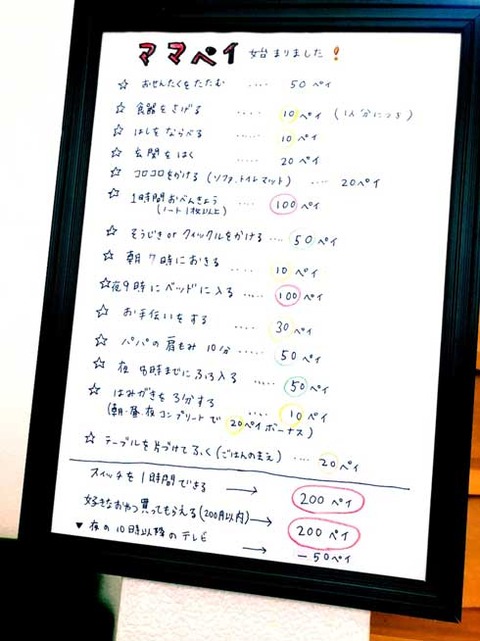 ママペイ 始まりました!
☆ おせんたくをたたむ .... 50 ペイ
☆ 食器をさげる .... 10 ペイ (1人分につき)
☆ はしをならべる .... 10 ペイ
☆ 玄関をはく .... 20 ペイ
☆ コロコロをかける (ソファ、トイレマット) .... 20ペイ
☆ 1時間おべんきょう .... 100 ペイ
(ノート1枚以上)
☆ そうじき or クイックルをかける .... 50 ペイ
☆ 朝 7時におきる .... 10 ペイ
☆ 夜9時にベッドに入る ..... 100 ペイ
☆ お手伝いをする ..... 30 ペイ
☆ パパの肩もみ 10分 ..... 50 ペイ
☆ 夜 8時までにふろ入る ..... 50 ペイ
☆ はみがきを3分する .... 10 ペイ
(朝・昼・夜コンプリートで 20ペイボーナス)
☆ テーブルを片づけてふく (ごはんのまえ) .... 20 ペイ
スイッチを1時間できる → 200 ペイ
好きなおやつ買ってもらえる (200円以内) → 200 ペイ
▼ 夜の10時以降のテレビ → -50ペイ